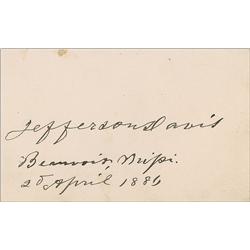 Jefferson Davis
Beauvoir, Missi.
2d April, 1886